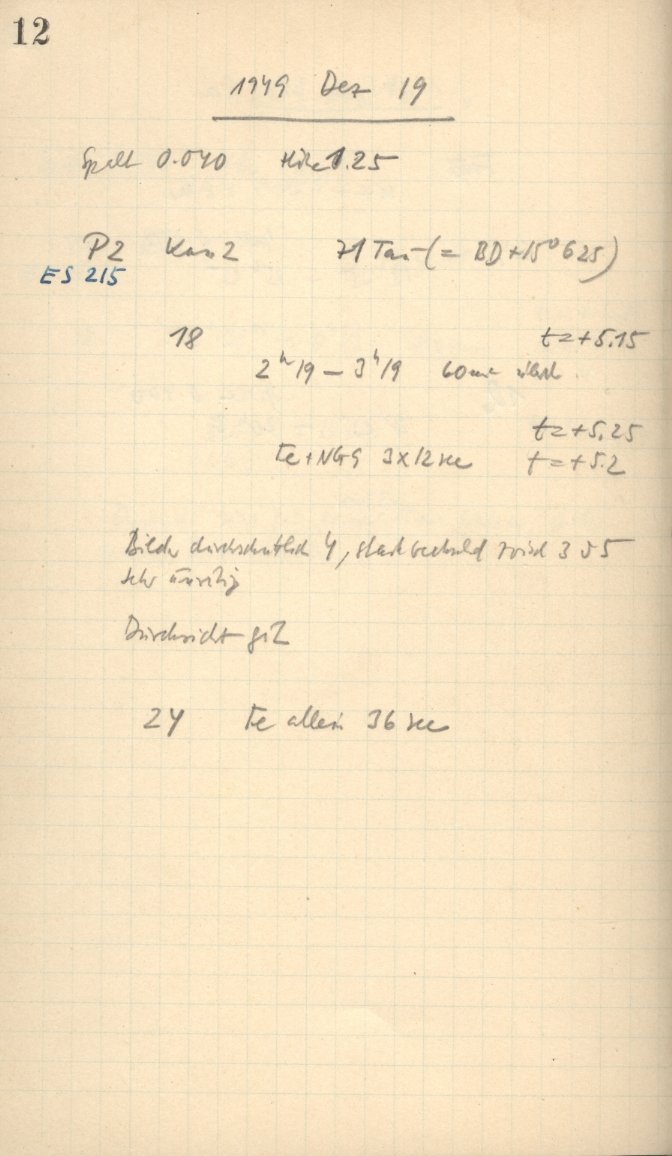 12
1949 Dez 19
Spalt 0.040 Höhe 1.25
P2 Kam 2 71 Tau (= BD+15° 625)
ES 215
18 t=+5.15
2h19 – 3h19 60 min
t=+5.25
Fe+NG9 3x12 sec t=+5.2
Bilder durchschnittlich 4, 3 5
sehr unruhig
Durchsicht gut
24 Fe allein 36 sec